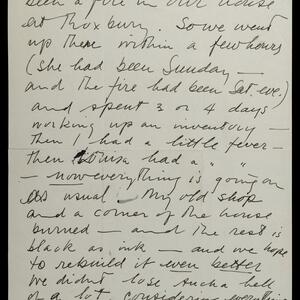 been a fire in our house
at Roxbury. So we went
up there within a few hours
(she had been Sunday —
and the fire had been Sat. eve.)
and spent 3 or 4 days
working up an inventory —
then I had a little fever —
then Louisa had a " "
— now everything is going on
as usual — My old shop
and a corner of the house
burned — and the rest is
black as ink — and we hope
to rebuild it even better
We didn't lose such a hell
of a lot considering everything